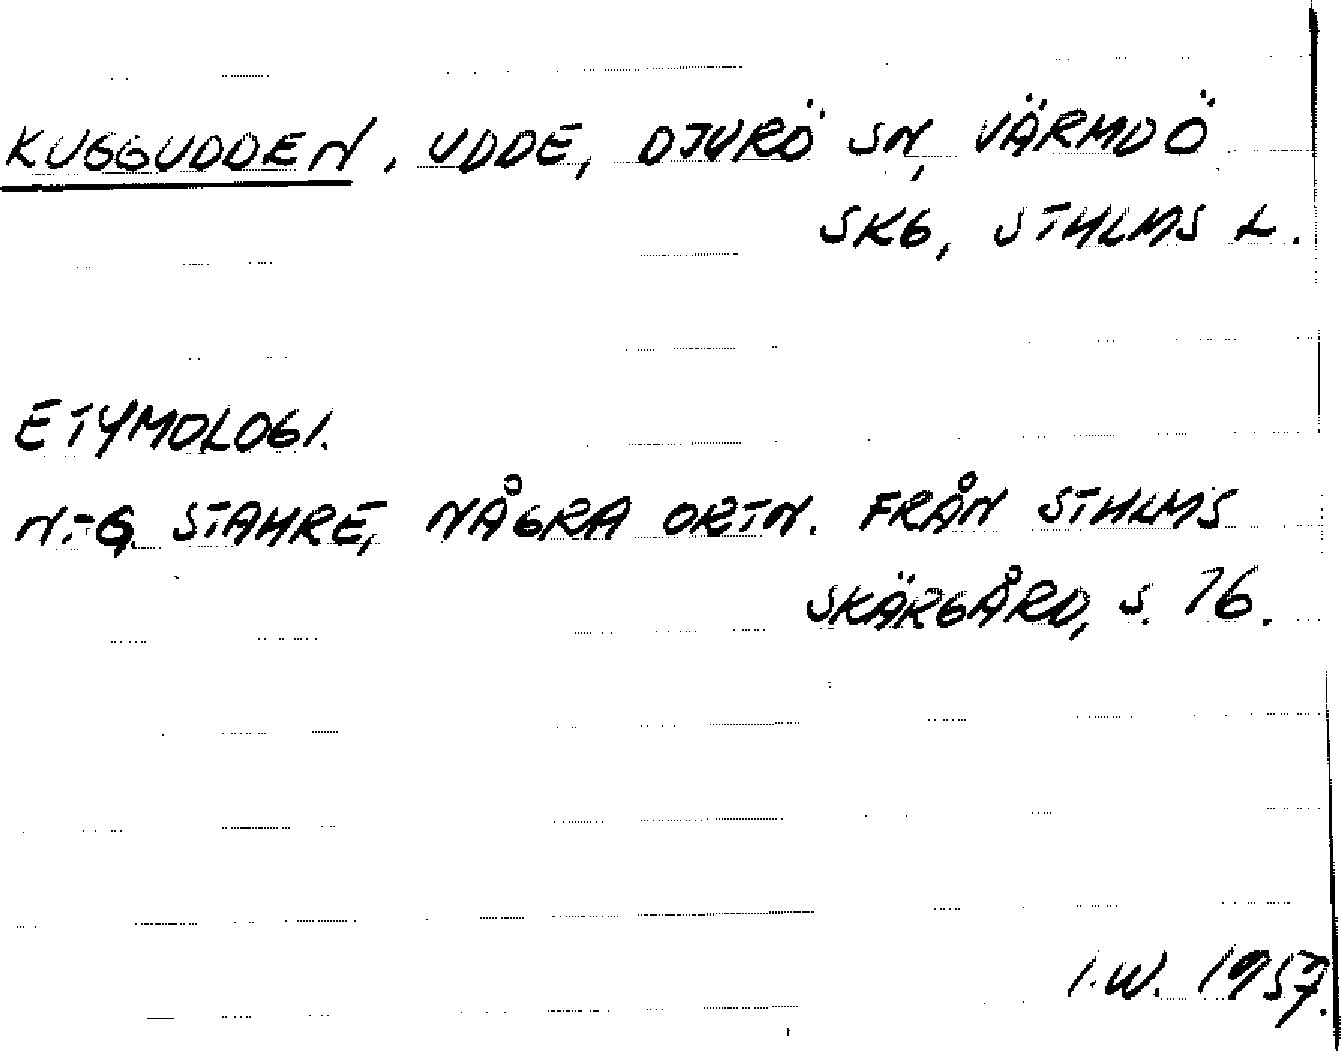 KUGGUDDEN. UDDE, DJURÖ SN, VÄRMDÖ
SKG, STHLMS L.
ETYMOLOGI.
N.-G. STAHRE, NÅGRA ORTN. FRÅN STHLMS
SKÄRGÅRD, S. 76.
I.W. 1957.